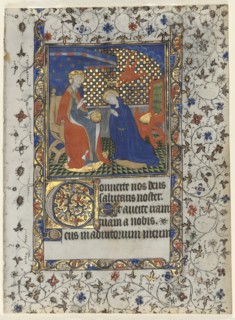 Conuerte nos deus
salutaris noster.
Et auerte iram
tuam a nobis.
Deus in adiutorium meum